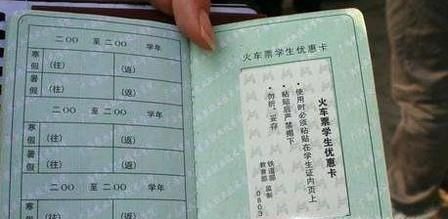 二00 至二00 学年
寒假 (往) (返)
暑假 (往) (返)
二00 至二00 学年
寒假 (往) (返)
暑假 (往) (返)
二00 至二00 学年
寒 (往) (返)
火车票学生优惠卡
火车票学生优惠卡
• 使用时必须粘贴在学生证内页上
• 粘贴后严禁揭下
• 勿折、妥存
铁道部
教育部
监制
0803